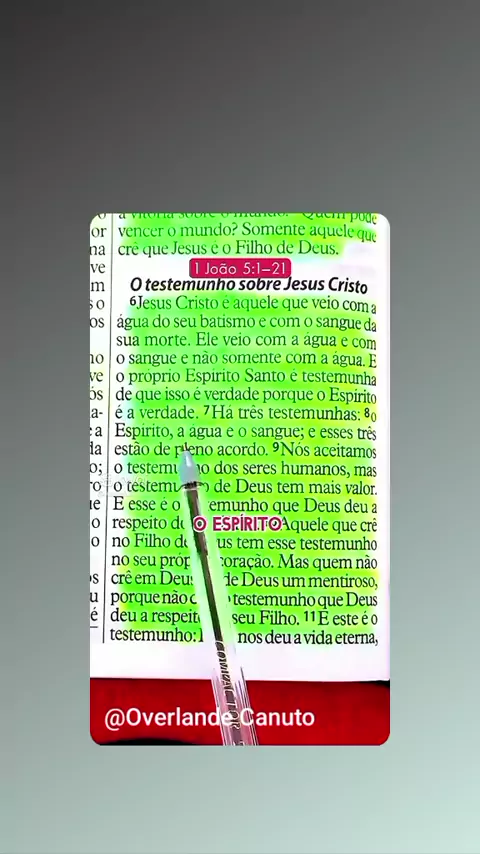 a vitória sobre o mundo. Quem pode
or vencer o mundo? Somente aquele que
na crê que Jesus é o Filho de Deus.
ve 1 João 5:1–21
m O testemunho sobre Jesus Cristo
s o 6Jesus Cristo é aquele que veio com a
os água do seu batismo e com o sangue da
sua morte. Ele veio com a água e com
no o sangue e não somente com a água. E
ve o próprio Espírito Santo é testemunha
os de que isso é verdade porque o Espírito
a- é a verdade. 7Há três testemunhas: 8o
: a Espírito, a água e o sangue; e esses três
da estão de pleno acordo. 9Nós aceitamos
o; o testemunho dos seres humanos, mas
ro o testemunho de Deus tem mais valor.
u E esse é o testemunho que Deus deu a
o respeito do O ESPÍRITO Aquele que crê
o no Filho de Deus tem esse testemunho
no seu próprio coração. Mas quem não
os crê em Deus de Deus um mentiroso,
u porque não o testemunho que Deus
é deu a respeito seu Filho. 11E este é o
testemunho: nos deu a vida eterna,
COMPACTOR
@Overlande Canuto